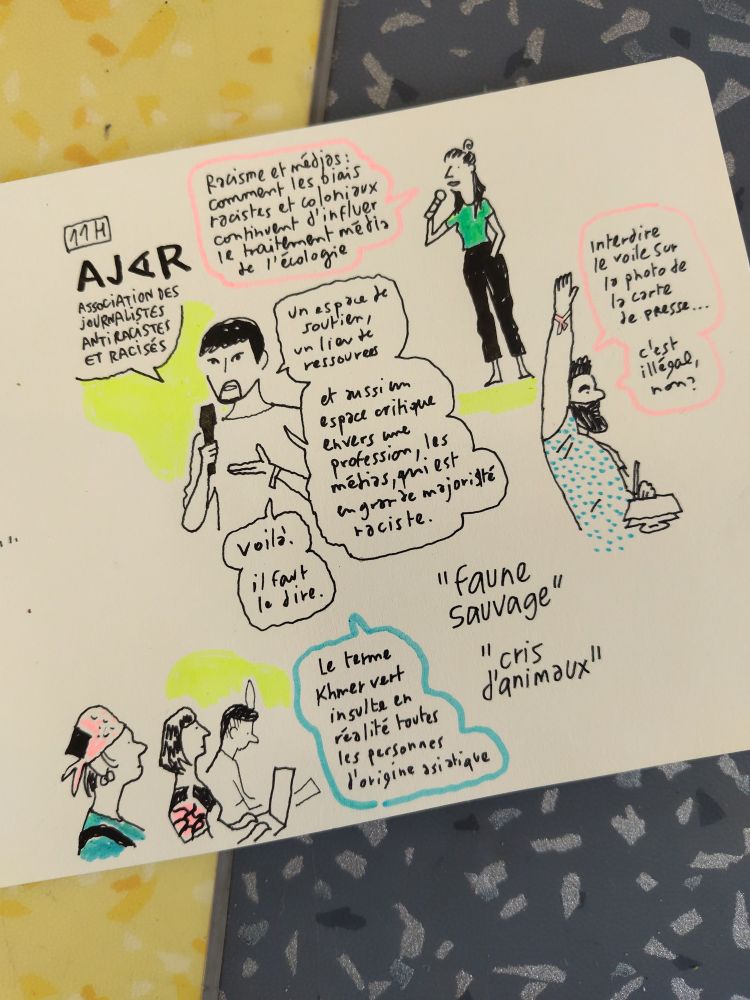 11H
AJAR
ASSOCIATION DES
JOURNALISTES
ANTIRACISTES
ET RACISÉS
Racisme et médias :
comment les biais
racistes et coloniaux
continuent d'influer
le traitement média
de l'écologie
un espace de
soutien,
un lieu de
ressources
et aussi un
espace critique
envers une
profession, les
médias, qui est
en grande majorité
raciste.
Voilà.
il faut
le dire.
Interdire
le voile sur
la photo de
la carte
de presse...
c'est
illégal,
non?
"faune
sauvage"
"cris
d'animaux"
Le terme
Khmer vert
insulte en
réalité toutes
les personnes
d'origine asiatique